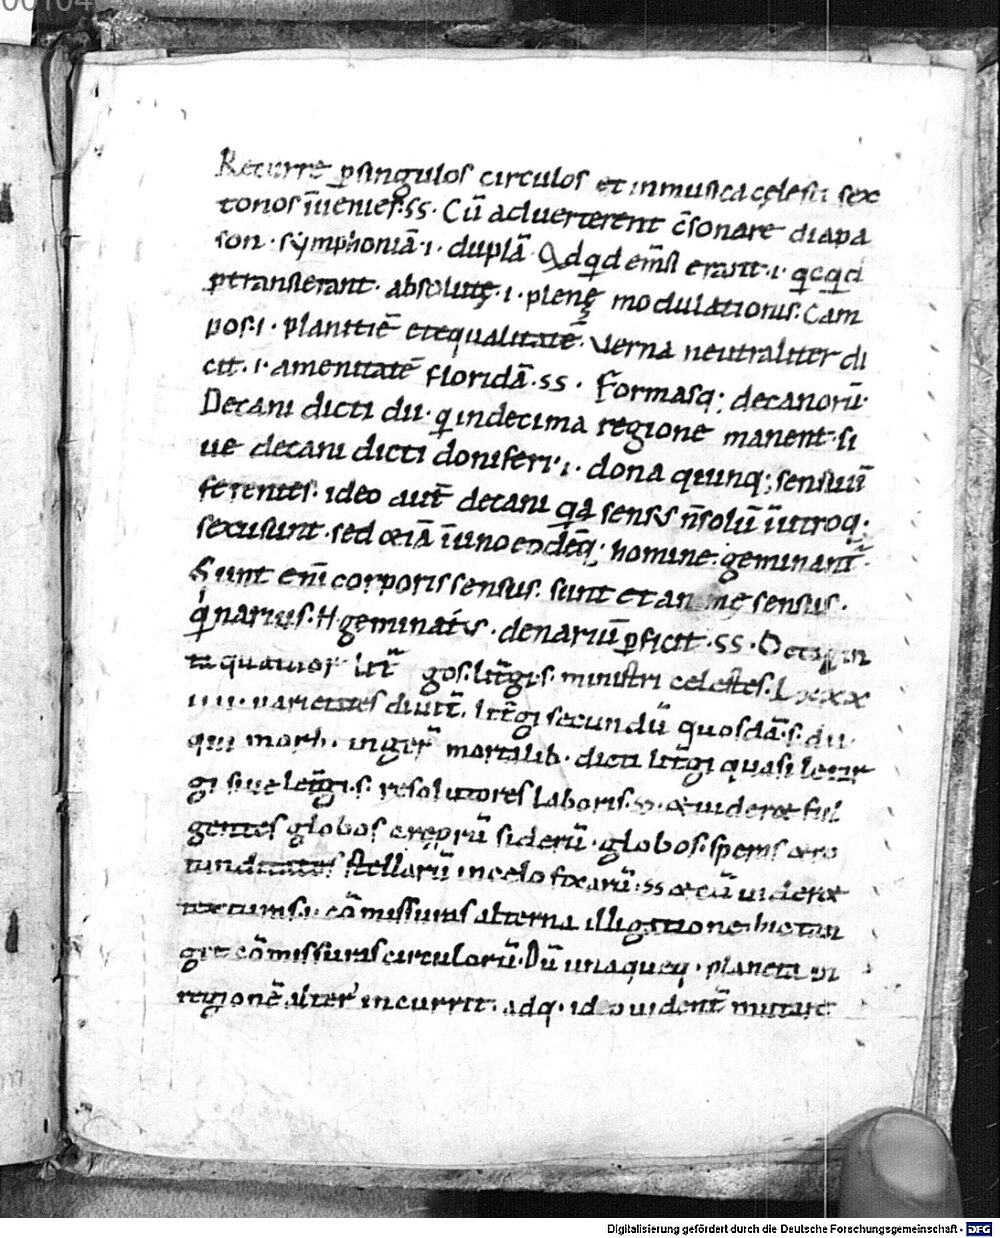 Recurre ꝑsingulos circulos et inmusica cęlesti sex
tonos īuenies. ss. Cū aduerterent c̄sonare diapa
son · symphoniā ·i· duplā. Qdqd em̄si erant ·i· qcqd
ptransierant · absolutę ·i· plenę modulationis. Cam
pos ·i· planitiē etequalitatē. Verna neutraliter di
cit ·i· amenitatē floridā · ss · Formasq; decanorū
Decani dicti dii · q indecima regione manent · si
ue decani dicti doniferi ·i· dona quinq; sensuū
ferentes. ideo aut̄ decani qa sensus n̄solū īutroq;
sexusunt · sed & iā īuno eodēq; homine geminant̄ ·
Sunt eni corporis sensus. sunt et an me sensus.
qnarius. H geminatus · denariū ꝑficit · ss · Octagin
ta quatuor lit̄ gos. lit̄gi ·s· ministri celestes. Lxxx
iiii · narietates diuit̄. lit̄gi secundū quosdā ·s· dii
qui morb · inger̄ mortalib · dicti lit̄gi quasi letar
gi siue let̄gi ·s· resolutores laboris. ss. & uidere ful
gentes globos creprū siderū · globos · speras & ro
tunditates stellarū incelo fixarū · ss & cū uidere
texturas ·i· cōmissuras alterna illigatione hic tan
git cōmissuras circulorū. Dū unaqueq · planeta in
regionē alter' incurrit · adq · ideo uident̄ mutare
Digitalisierung gefördert durch die Deutsche Forschungsgemeinschaft - DFG